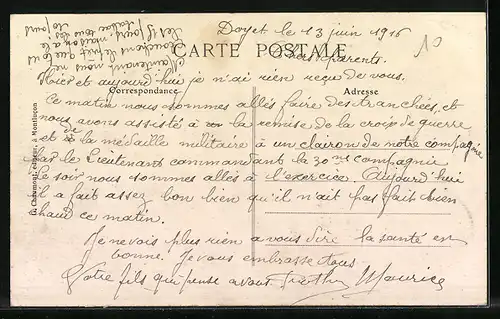 Doyet le 13 juin 1916
CARTE POSTALE
Chers parents.
Hier et aujourd'hui je n'ai rien reçu de vous.
Correspondance
Adresse
Ce matin nous sommes allés faire des tranchées, et
nous avons assisté à la remise de la croix de guerre
et de la médaille militaire à un clairon de notre compagnie
par le Lieutenant commandant la 30me compagnie
le soir nous sommes allés à l'exercice. Aujourd'hui
il a fait assez bon bien qu'il n'ait pas fait bien
chaud ce matin.
Je ne vais plus rien a vous dire la santé est
bonne. Je vous embrasse tous
Votre fils qui pense a vous Maurice
Maintenant nous ne
touchons le prêt que tous
les 10 jours mais on a le
tabac tous les
10 jours
10
Chaumont, éditeur, à Montluçon